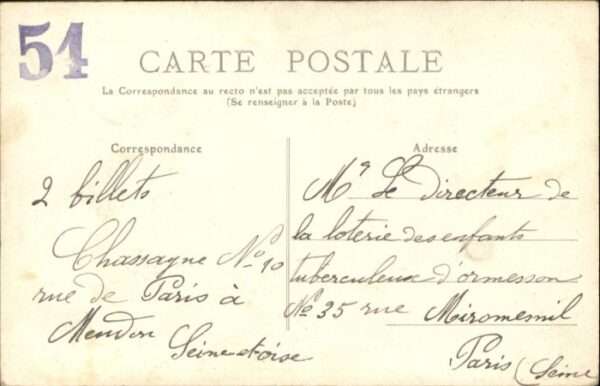 51
CARTE POSTALE
La Correspondance au recto n'est pas acceptée par tous les pays étrangers
(Se renseigner à la Poste)
Correspondance
2 billets
Chassagne No 10
rue de Paris à
Meudon
Seine et oise
Adresse
Mr Le Directeur de
la loterie des enfants
tuberculeux d'ormesson
No 35 rue Miromesnil
Paris (Seine